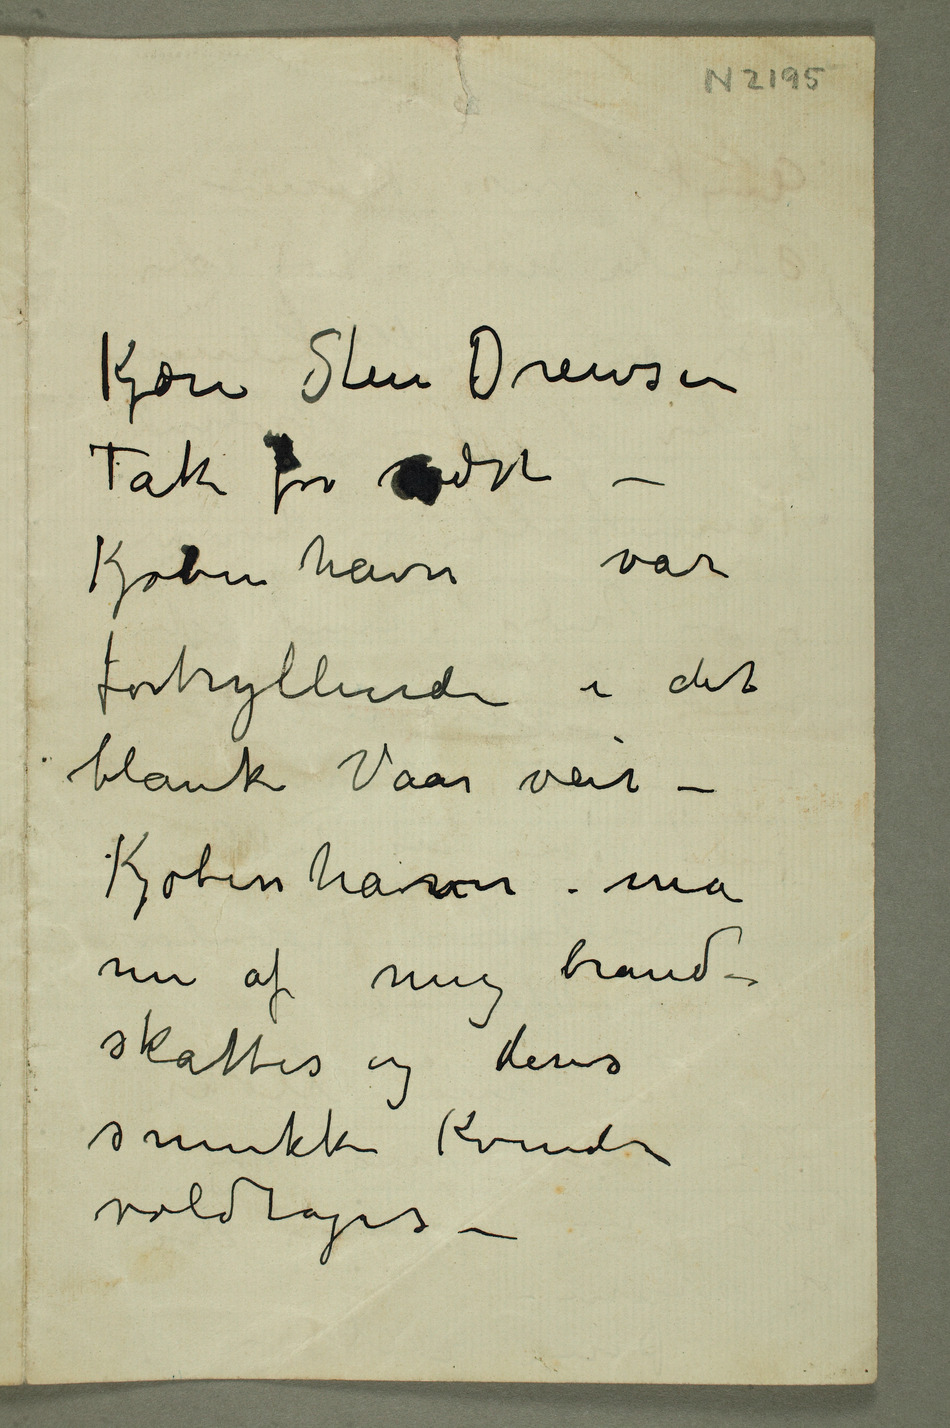 N 2195
Kjære Sten Drewsen
Tak for sidst –
Kjøbenhavn var
fortryllende i det
blanke Vaarveir –
Kjøbenhavn ma
nu af mig brand-
skattes og dens
smukke Kvinder
voldtages –